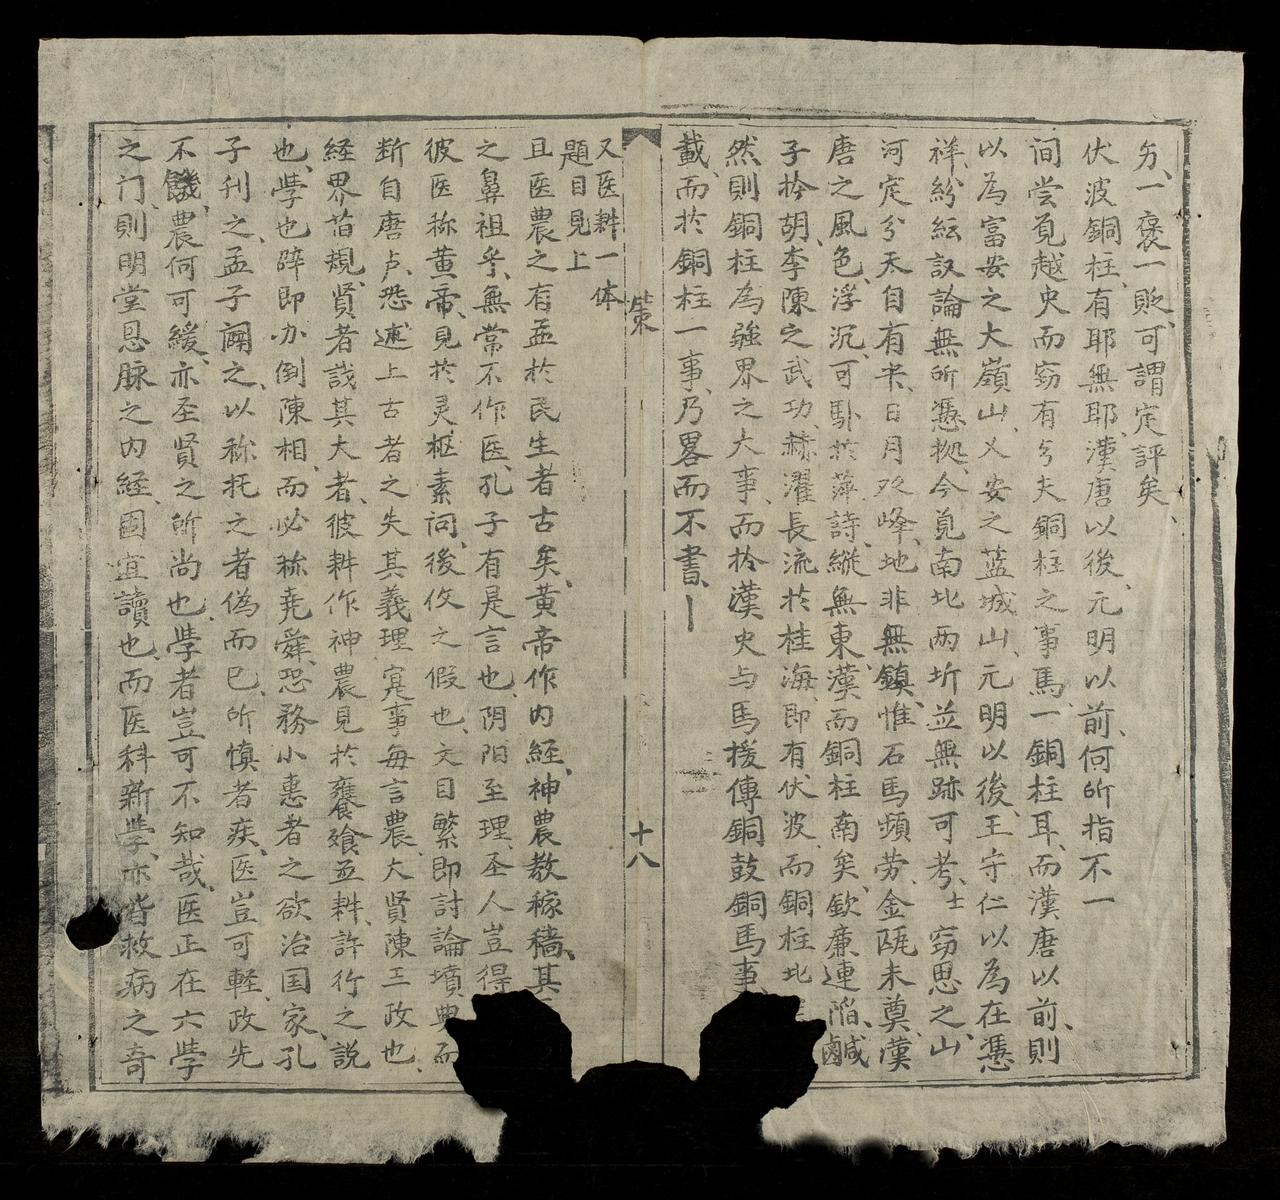 另、一褒一貶、可謂定評矣、
伏波銅柱、有耶無耶、漢唐以後、元明以前、何所指不一
间尝覓越史而窃有考夫銅柱之事焉、一銅柱耳、而漢唐以前、則
以為富安之大嶺山、乂安之藍城山、元明以後、王守仁以為在憑
祥、紛紜訟論無所憑拠、今覓南北两圻並無跡可考、士窃思之、山
河定分天自有书、日月双峰、地非無鎮、惟石馬頻劳、金瓯未奠、漢
唐之風色、浮沉、可卧於萍、詩縱無東漢而銅柱南矣、欽廉連陷、鹹
子於胡、李陳之武功、赫濯長流於桂海、即有伏波、而銅柱北
然則銅柱為強界之大事、而於漢史与馬援傳銅鼓銅馬事、
載、而於銅柱一事、乃畧而不書、
策
十八
又医耕一体
題目見上
且医農之有益於民生者古矣、黄帝作内経、神農教稼穡、其
之鼻祖乎、無常不作医、孔子有是言也、阴阳至理、圣人豈得
彼医称黄帝、見於灵枢素问、後攸之假也、文目繁即討論墳典而
断自唐卢、恐逑上古者之失其義理、寔事毎言農、大賢陳王政也、
経界苗規、賢者識其大者、彼耕作神農見於饔飧並耕、許行之說
也、學也辟即办倒陳相、而必称堯舜、恐務小惠者之欲治国家、孔
子刊之、孟子闢之、以称托之者偽而已、所慎者疾、医豈可軽、政先
不饑、農何可緩、亦圣賢之所尚也、學者豈可不知哉、医正在六學
之门、則明堂恩脉之内経、固宜讀也、而医科新學、亦皆救病之奇